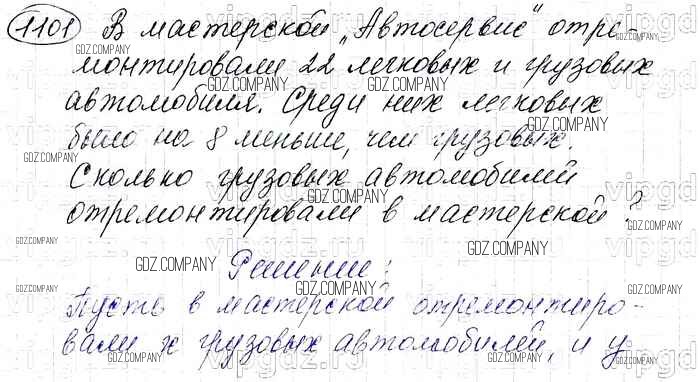 1101 В мастерской „Автосервис" отре-
монтировали 22 легковых и грузовых
автомобиля. Среди них легковых
было на 8 меньше, чем грузовых.
Сколько грузовых автомобилей
отремонтировали в мастерской?
Решение:
Пусть в мастерской отремонтиро-
вали x грузовых автомобилей, и y